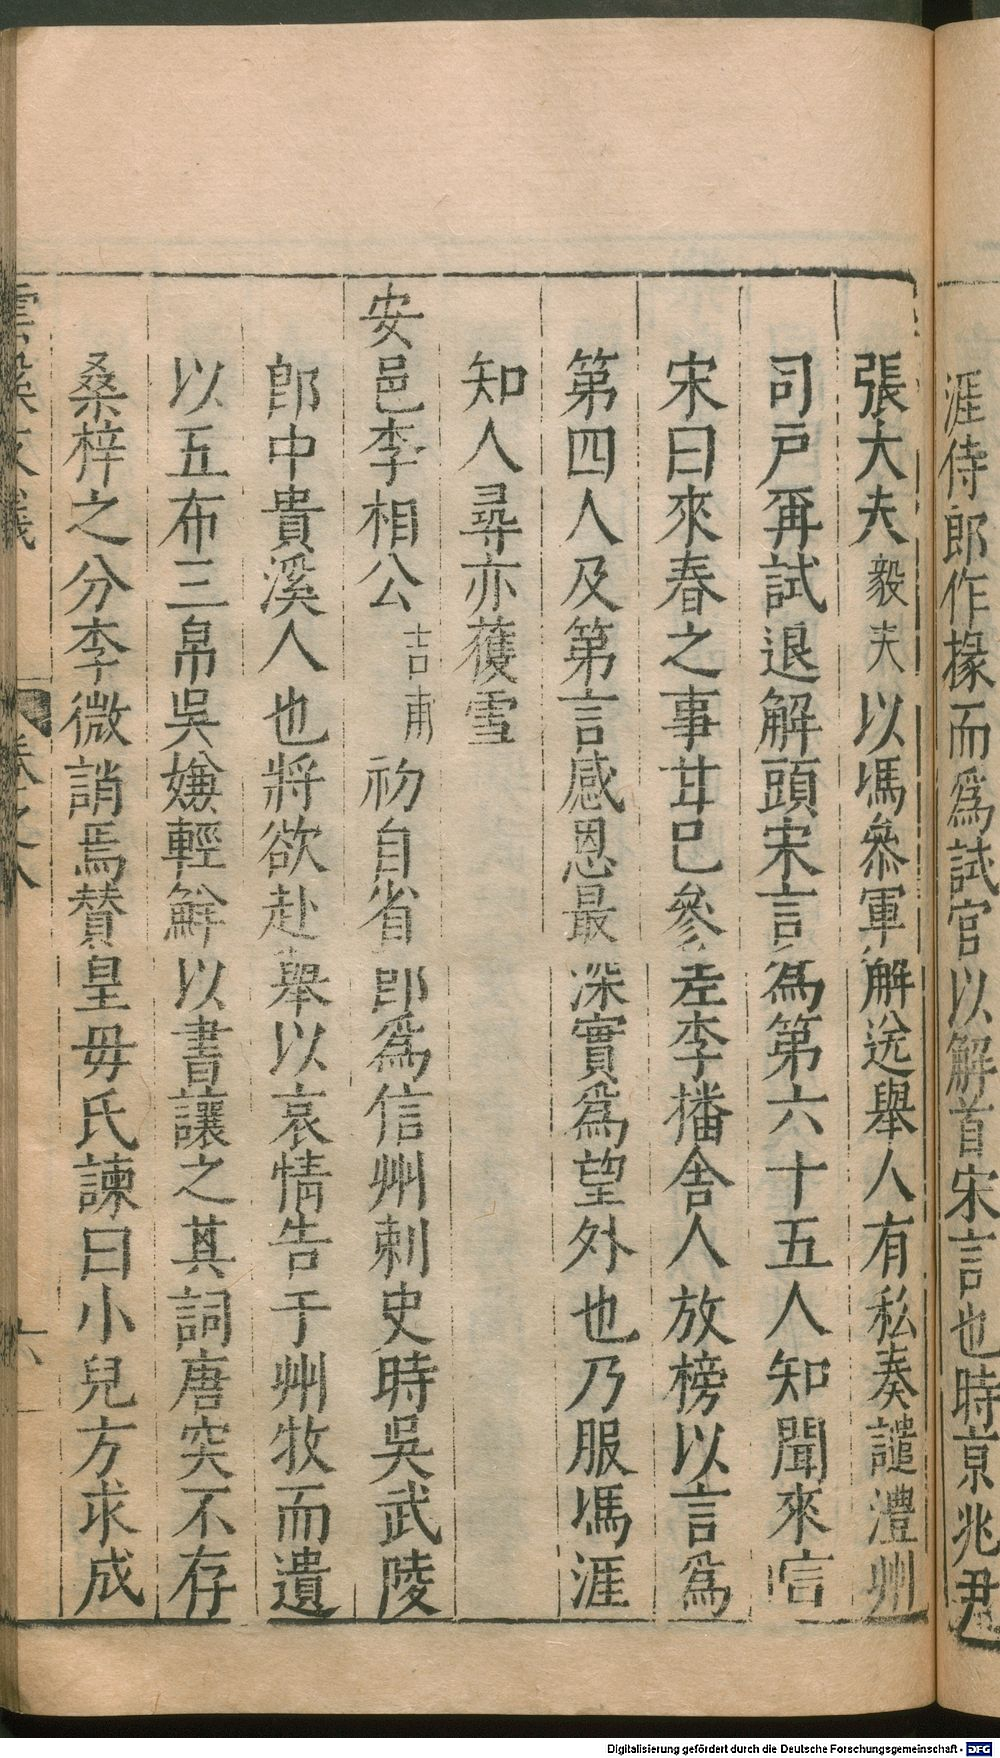 涯侍郎作掾而爲試官以解首宋言也時京兆尹
張大夫毅夫以馮參軍解送舉人有私奏譴澧州
司戶再試退解頭宋言爲第六十五人知聞來唁
宋曰來春之事甘已參差李播舍人放榜以言爲
第四人及第言感恩最深實爲望外也乃服馮涯
知人尋亦獲雪
安邑李相公吉甫初自省郎爲信州刺史時吳武陵
郎中貴溪人也將欲赴舉以哀情告于州牧而遺
以五布三帛吳嫌輕鮮以書讓之其詞唐突不存
桑梓之分李微誚焉贊皇毋氏諫曰小兒方求成
雲谿友議 卷之 六
Digitalisierung gefördert durch die Deutsche Forschungsgemeinschaft - DFG